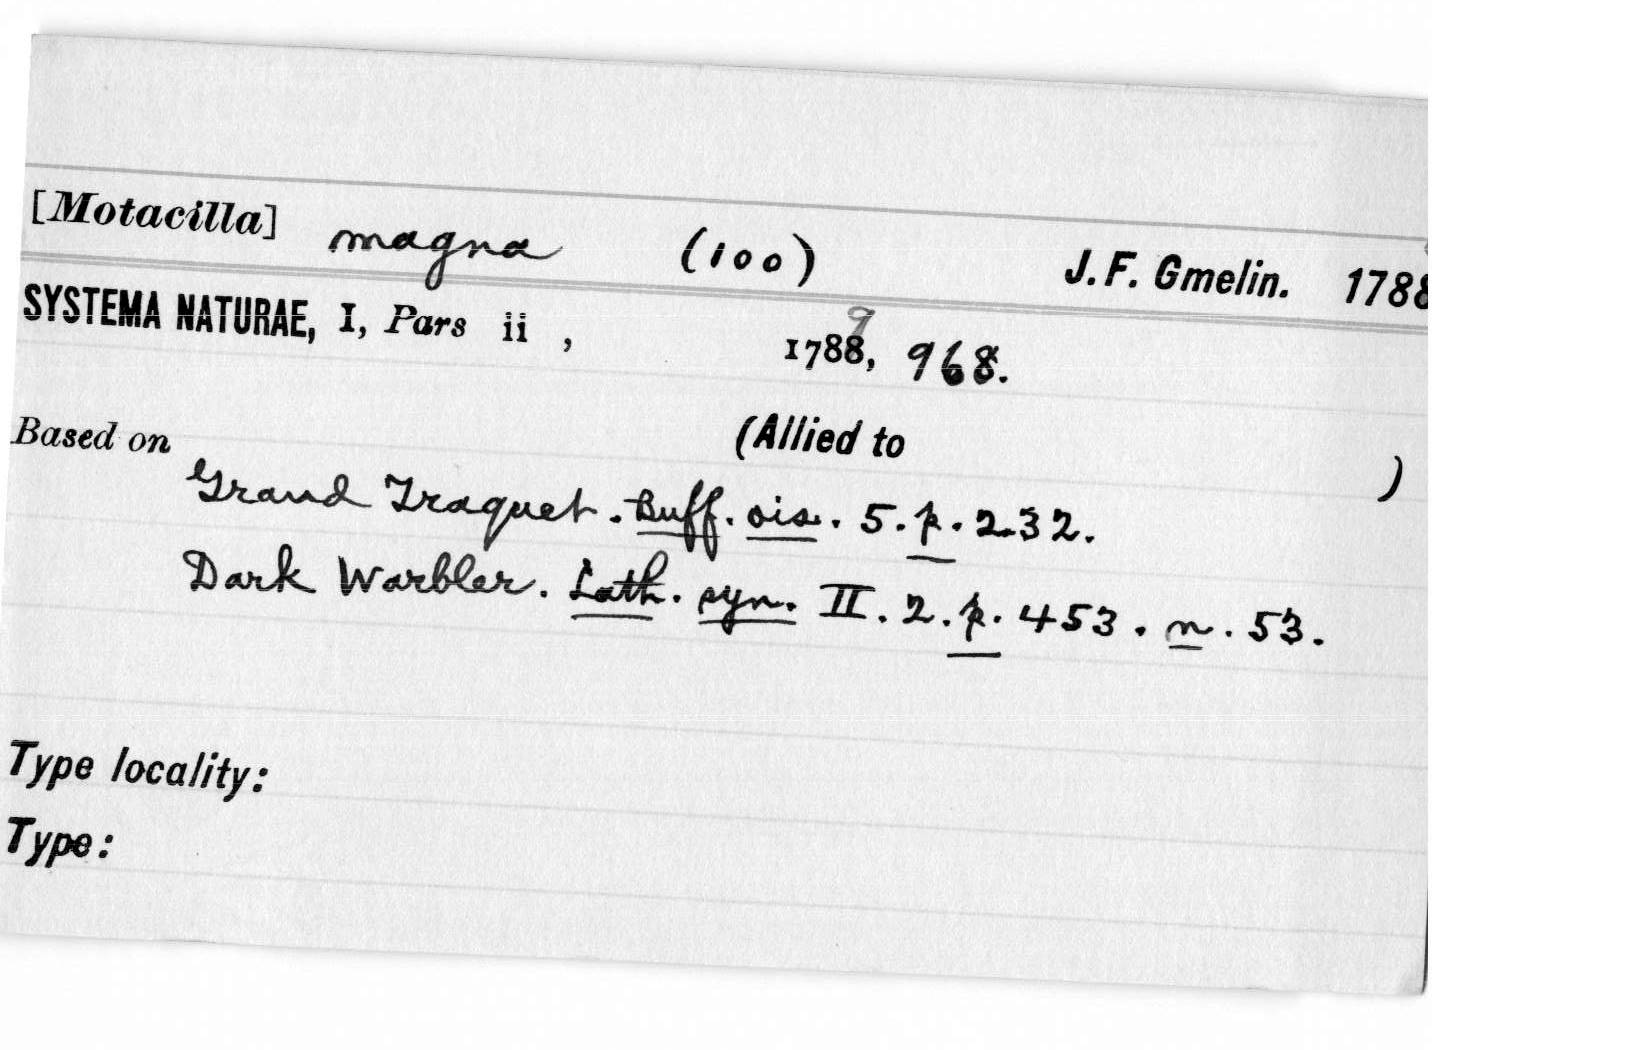 [Motacilla] magna (100) J. F. Gmelin. 1788
SYSTEMA NATURAE, I, Pars ii , 1788, 9 968.
Based on (Allied to )
Grand Traquet. Buff. ois. 5. p. 232.
Dark Warbler. Lath. syn. II. 2. p. 453. n. 53.
Type locality:
Type: